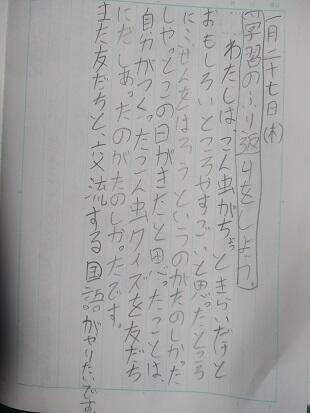 一月二十七日(木)
学習のふり返りをしよう。
わたしは、こん虫がちょっときらいだけど
おもしろいところやすごいと思ったところ
にふせんをはろうというのがたのしかった
しやっとこの日がきたと思ったことは、
自分がつくったこん虫クイズを友だち
にだしあったのがたのしかったです。
また友だちと、交流する国語がやりたいです。